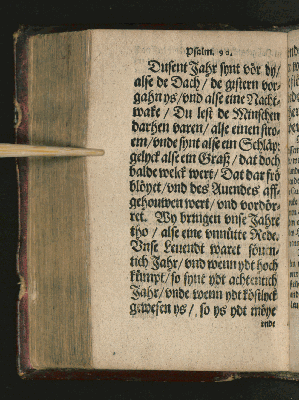 Psalm. 90.
Dusent Jahr synt vör dy/
alse de Dach/ de gistern vor-
gahn ys/ vnd alse eine Nacht-
wake/ Du lest de Minschen
darhen varen/ alse einen stro-
em/ vnde synt alse ein Schlap/
gelyck alse ein Graß/ dat doch
balde welck wert/ Dat dar frö
blöyet/ vnd des Auendes aff-
gehouwen wert/ vnd vordör-
ret. Wy bringen vnse Jahre
tho/ alse eine vnnütte Rede.
Vnse Leuendt waret söuen-
tich Jahr/ vnd wenn ydt hoch
kümpt/ so synt ydt achtentich
Jahr/ vnde wenn ydt köstlyck
gewesen ys/ so ys ydt möye
vnde